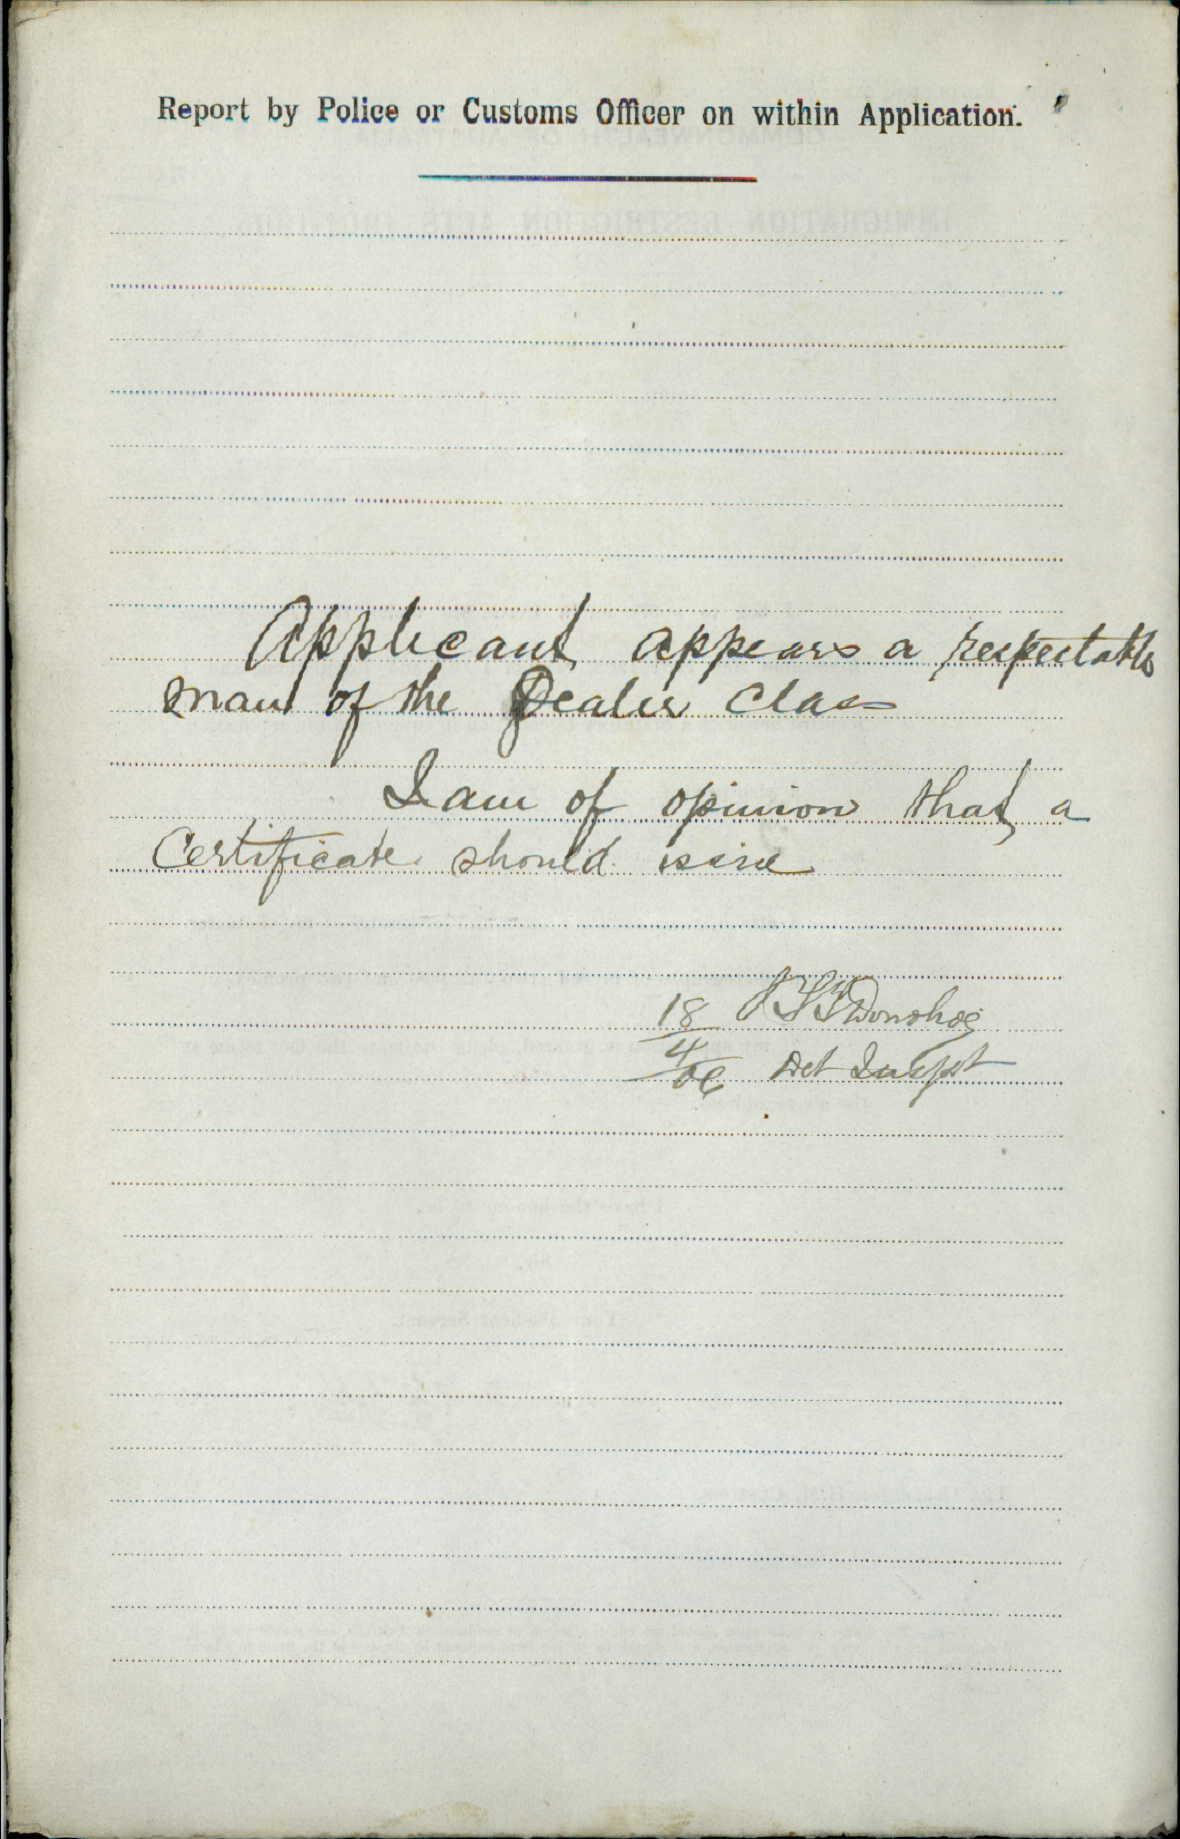 Report by Police or Customs Officer on within Application.
Applicant appears a respectable
man of the Dealer Class
I am of opinion that a
Certificate should issue
18/4/06
Donohoe
Det Inspt